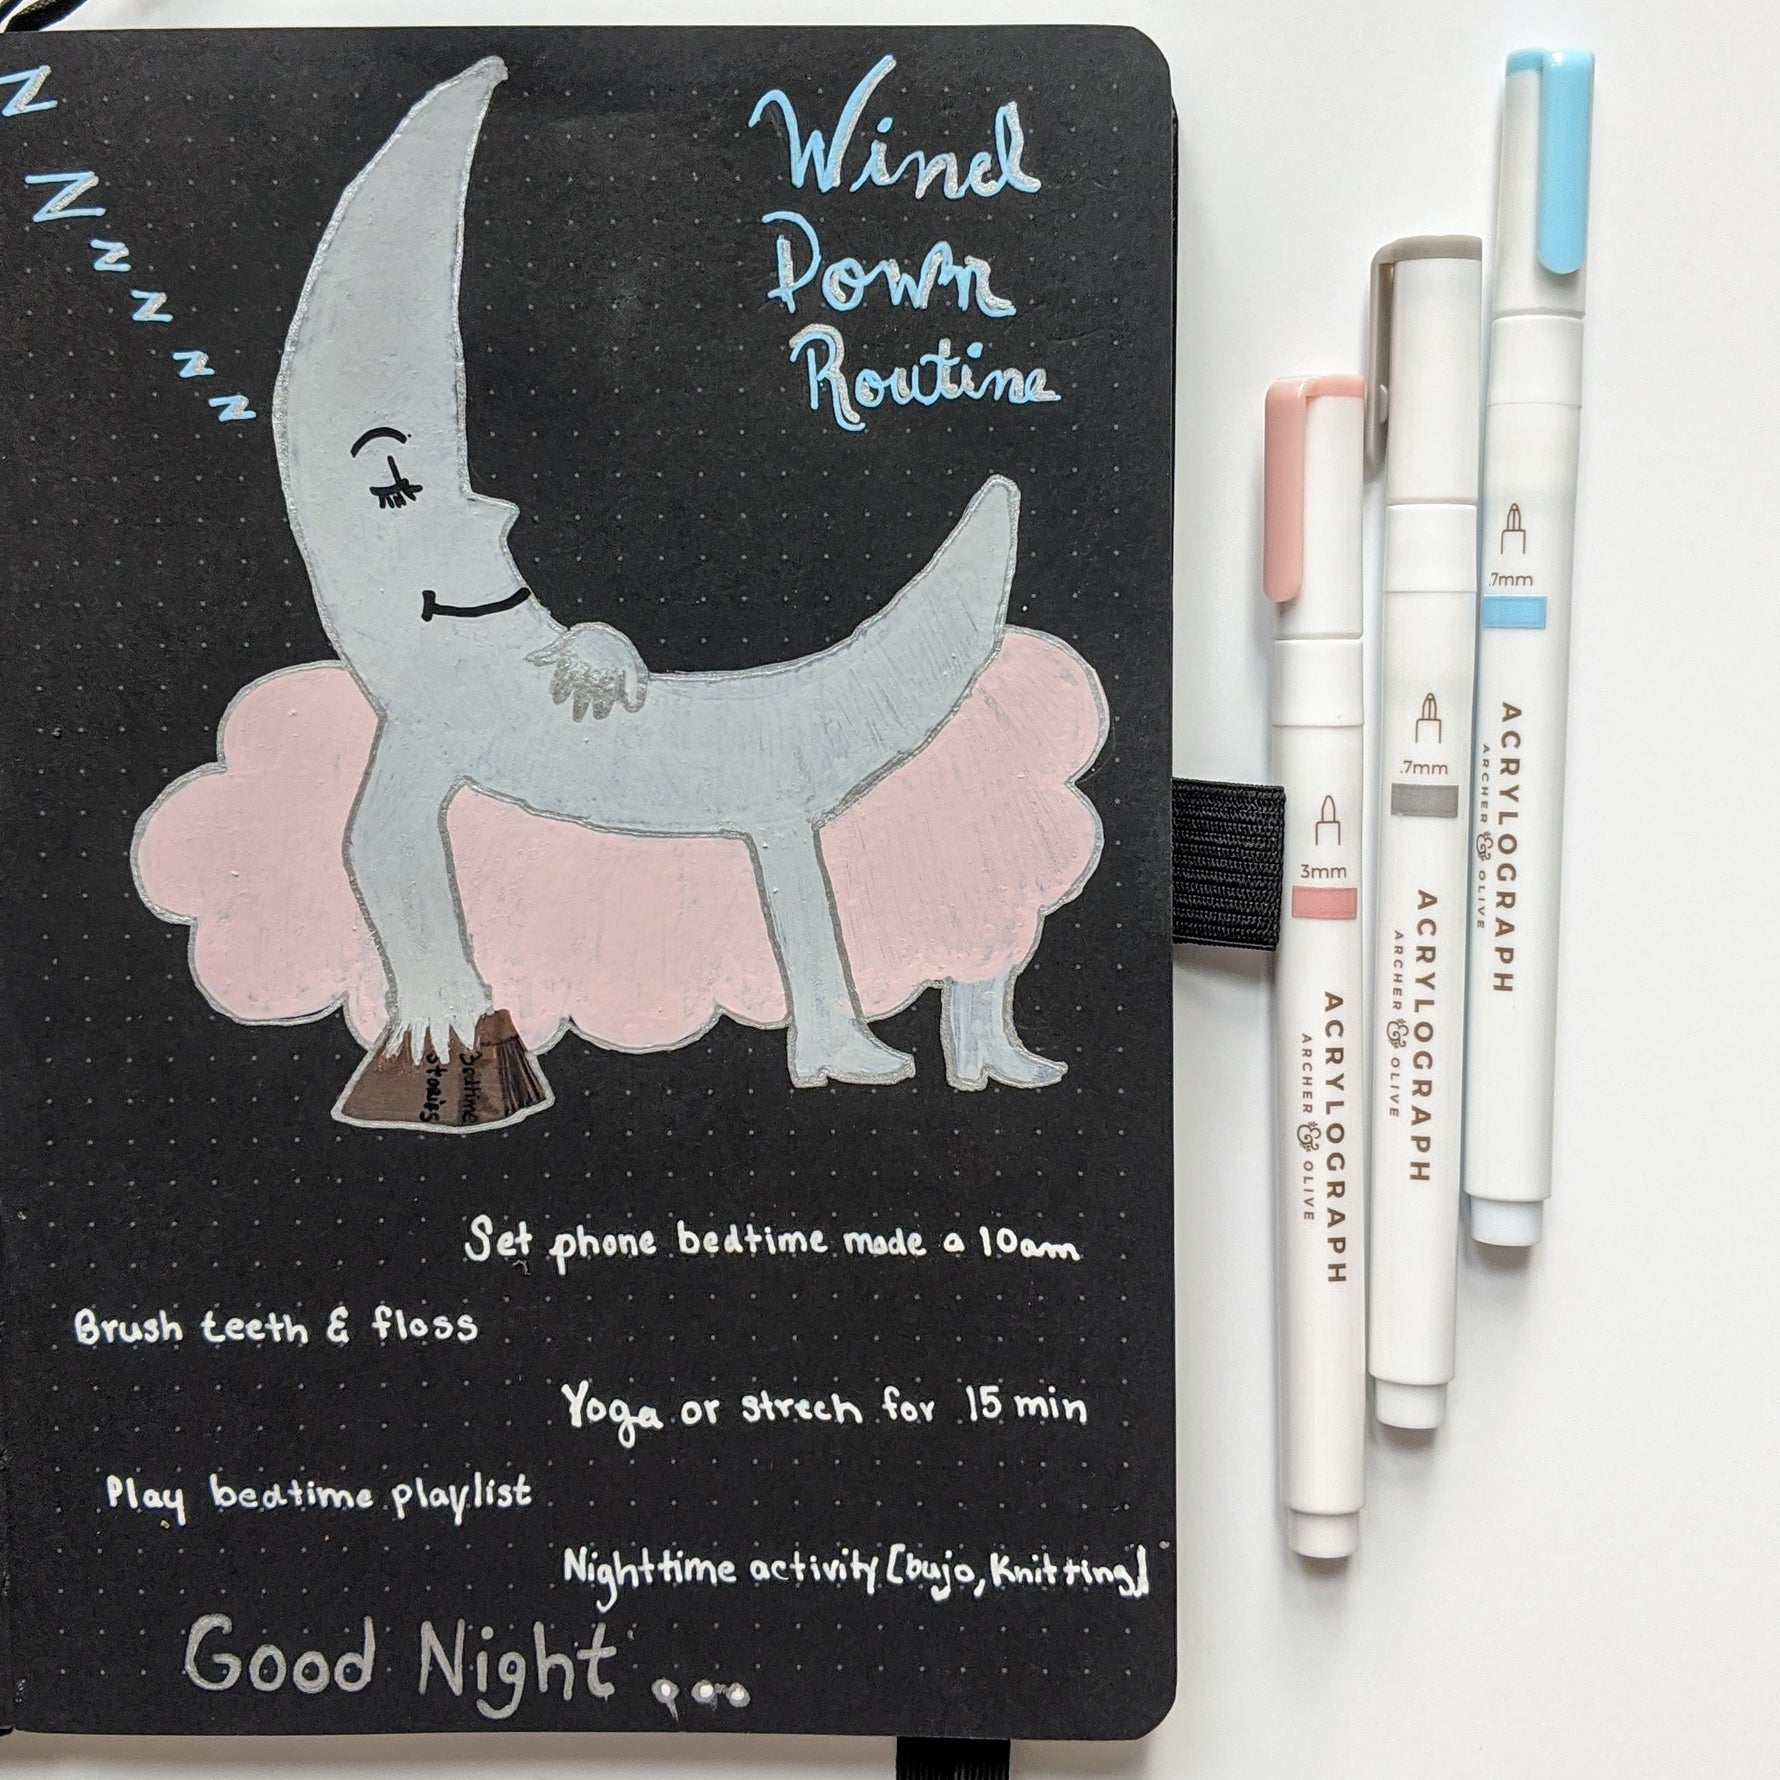 z
z
z
z
z
z
Wind
Down
Routine
Bedtime
Stories
Set phone bedtime mode a 10am
Brush teeth & floss
Yoga or strech for 15 min
Play bedtime playlist
Nighttime activity [bujo, Knitting]
Good Night...
3mm
ACRYLOGRAPH
ARCHER & OLIVE
.7mm
ACRYLOGRAPH
ARCHER & OLIVE
.7mm
ACRYLOGRAPH
ARCHER & OLIVE